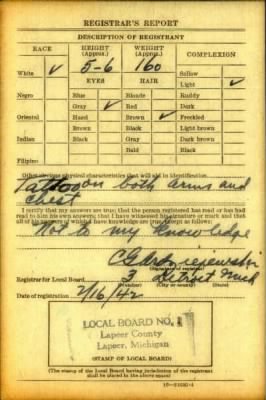 REGISTRAR'S REPORT
DESCRIPTION OF REGISTRANT
RACE HEIGHT (Approx.) WEIGHT (Approx.) COMPLEXION
5-6 160
White ✓ EYES HAIR Sallow
Light ✓
Negro Blue Blonde Ruddy
Gray ✓ Red Dark
Oriental Hazel Brown ✓ Freckled
Brown Black Light brown
Indian Black Gray Dark brown
Bald Black
Filipino
Other obvious physical characteristics that will aid in identification
Tattoo on both arms and
chest
I certify that my answers are true; that the person registered has read or has had
read to him his own answers; that I have witnessed his signature or mark and that
all of his answers of which I have knowledge are true, except as follows:
Not to my knowledge
(Signature of registrar)
Registrar for Local Board 3 Detroit Mich
Date of registration 2/16/42
LOCAL BOARD NO. 1
Lapeer County
Lapeer, Michigan
(STAMP OF LOCAL BOARD)
(The stamp of the Local Board having jurisdiction of the registrant
shall be placed in the above space)